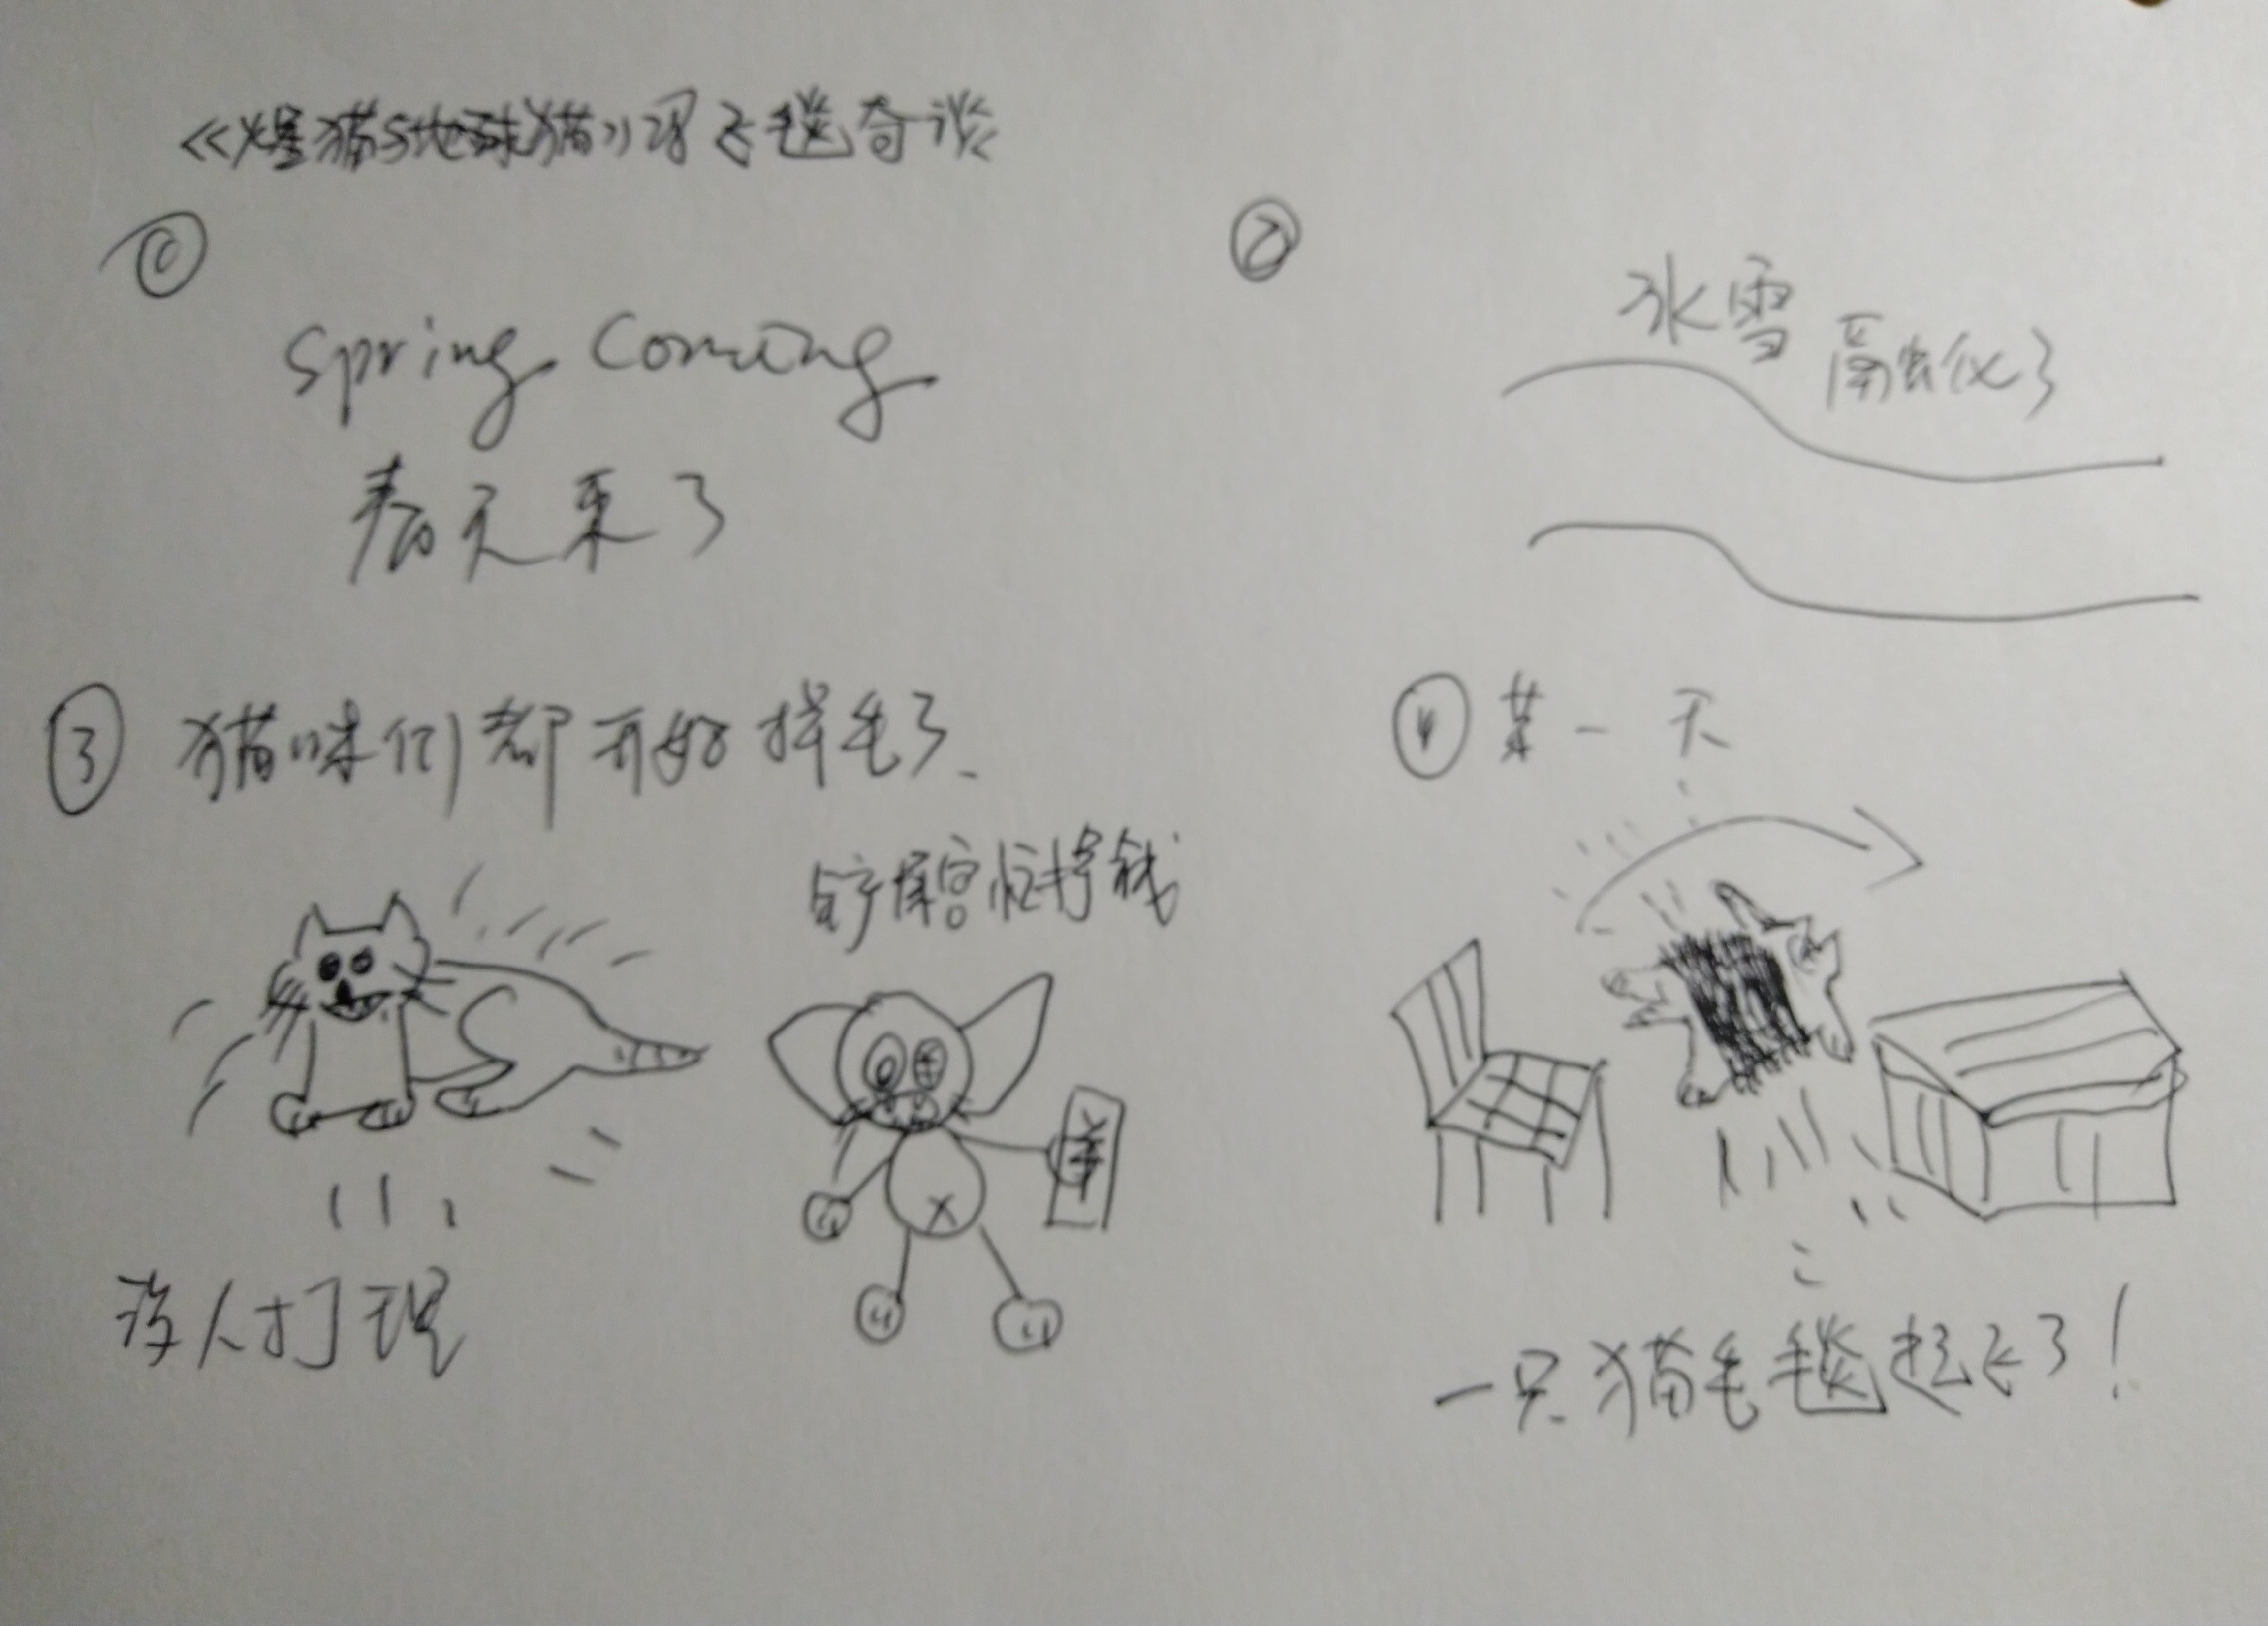 《爆猫与地球猫》之飞毯奇谈
①
Spring Coming
春天来了
②
冰雪
融化了
③ 猫咪们都开始掉毛了.
铲屎官忙挣钱
¥
没人打理
④ 某一天
一只猫毛毯起飞了!